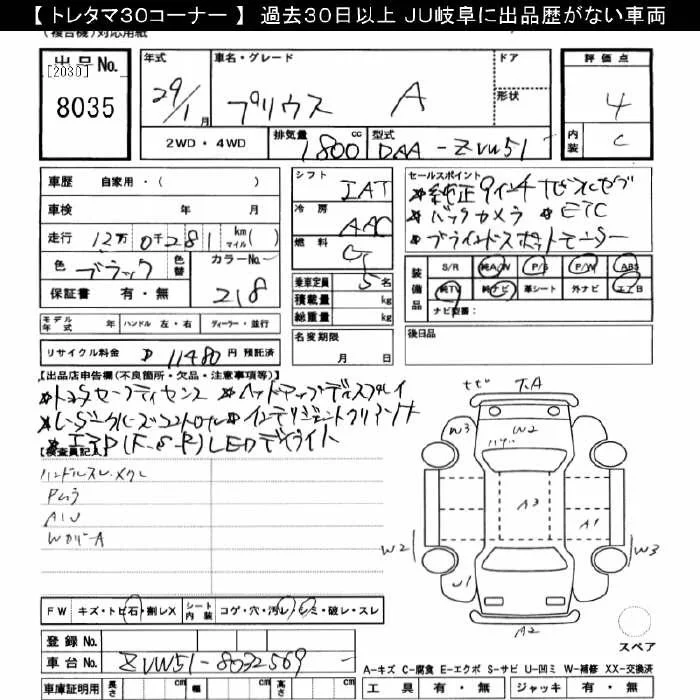 【 トレタマ30コーナー 】 過去30日以上 JU岐阜に出品歴がない車両
(複合機)対応用紙
出品No.
[2030]
8035
年式
29/1月
車名・グレード
プリウス A
ドア
形状
評価点
4
内装
C
2WD・4WD
排気量
1800 cc
型式
DAA-ZVW51
車歴 自家用・( )
車検 年 月
走行 12万0千281 km マイル( )
色 ブラック
色替
カラーNo.
218
保証書 有・無
シフト
IAT
冷房
AAC
燃料
乗車定員 5名
積載量 kg
総重量 kg
セールスポイント
*バックカメラ *ETC
*ブラインドスポットモニター
装備品
S/R 純A/W P/S P/W ABS
純TV 純ナビ 革シート 外ナビ エアB
ナビ型番:
モデル年式 年 ハンドル 左・右 ディーラー・並行
リサイクル料金 11480円 預託済
名変期限
月 日
後日品
【出品店申告欄(不良箇所・欠品・注意事項等)】
*トヨタセーフティセンス *ヘッドアップディスプレイ
*レーダークルーズコントロール *インテリジェントクリアランス
LEDデイライト
【検査員記入】
ハンドルスレ
AIU
WカバーA
W3
W2
A3
A1
W2
W3
U1
A2
スペア
FW キズ・トビ石・割レX
シート内装 コゲ・穴・汚レ・シミ・破レ・スレ
登録No.
車台No. ZVW51-8032569
A-キズ C-腐食 E-エクボ S-サビ U-凹ミ W-補修 XX-交換済
車庫証明用 長さ cm 幅 cm 高さ cm
工具 有・無 ジャッキ 有・無